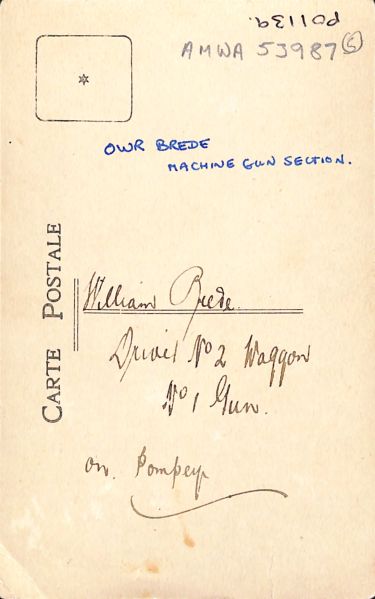 P01139.
AMWA 53987 6
OWR BREDE
MACHINE GUN SECTION.
CARTE POSTALE
William Brede.
Driver No 2 Waggon
No 1 Gun.
on Pompey